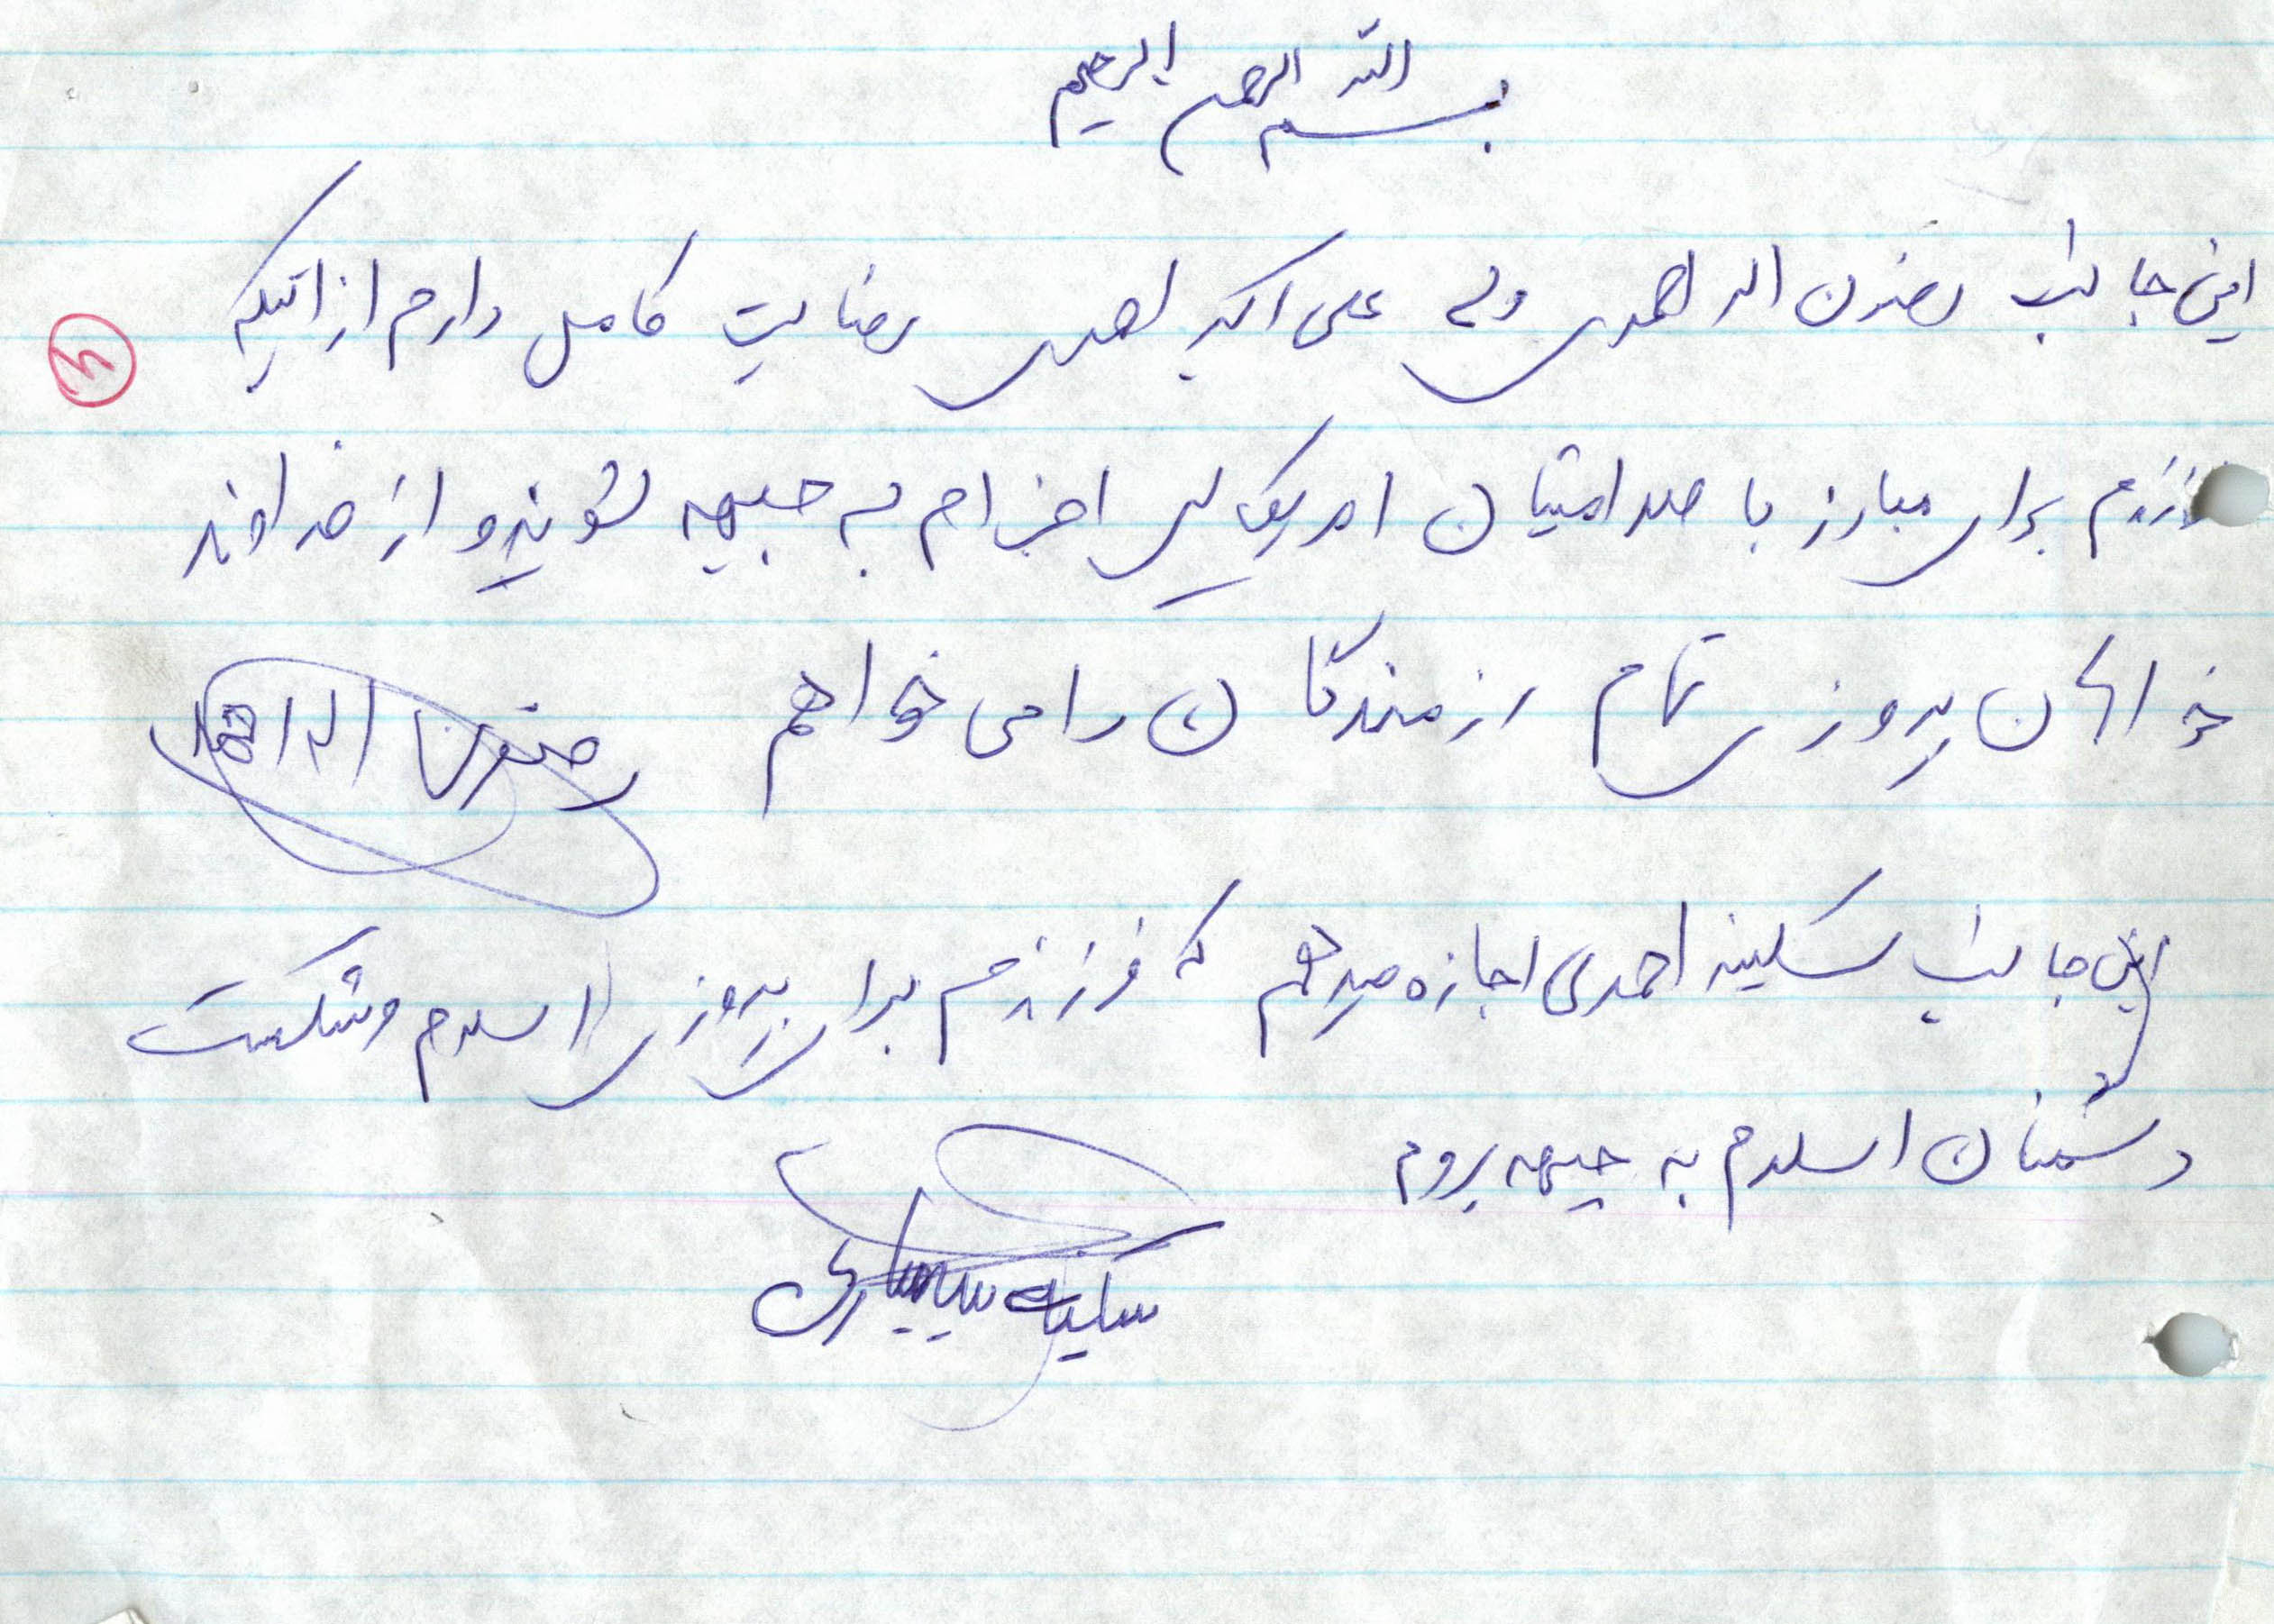 بسم الله الرحمن الرحیم
این جانب رضوان اله احمدی ولی علی اکبر احمدی رضایت کامل دارم از اینکه
فرزندم برای مبارز با صدامیان امریکایی اعزام به جبهه شوند و از خداوند
خواهان پیروزی تمام رزمندگان را می خواهم
رضوان اله احمدی
این جانب سکینه احمدی اجازه میدهم که فرزندم برای پیروزی اسلام و شکست
دشمنان اسلام به جبهه بروم
سکینه